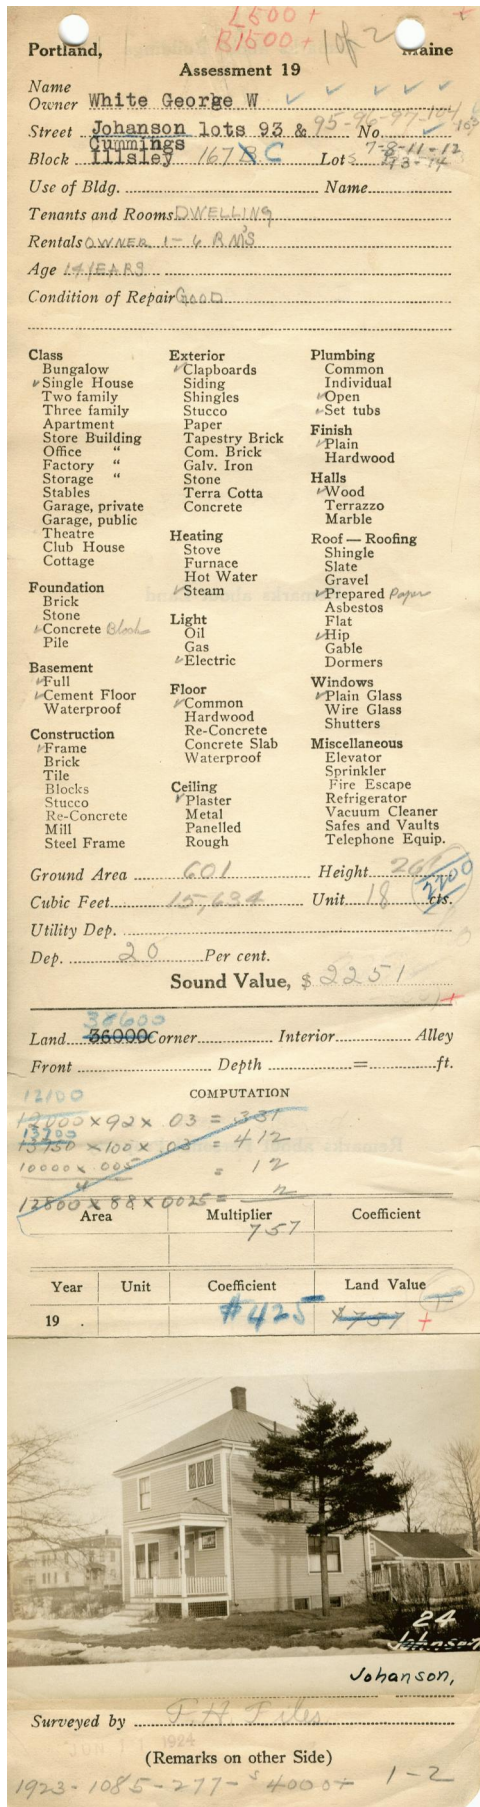 L500 +
B1500 + 1 of 2
Portland, Maine
Assessment 19
Name
Owner White George W
Street Johanson lots 93 & 95-96-97-104 No. 103
Cummings
Block Illsley 167 B C Lots 7-8-11-12
13-14
Use of Bldg. Name
Tenants and Rooms DWELLING
Rentals OWNER 1-6 RM'S
Age 14 YEARS
Condition of Repair GOOD
Class
Bungalow
Single House
Two family
Three family
Apartment
Store Building
Office "
Factory "
Storage "
Stables
Garage, private
Garage, public
Theatre
Club House
Cottage
Foundation
Brick
Stone
Concrete Blocks
Pile
Basement
Full
Cement Floor
Waterproof
Construction
Frame
Brick
Tile
Blocks
Stucco
Re-Concrete
Mill
Steel Frame
Exterior
Clapboards
Siding
Shingles
Stucco
Paper
Tapestry Brick
Com. Brick
Galv. Iron
Stone
Terra Cotta
Concrete
Heating
Stove
Furnace
Hot Water
Steam
Light
Oil
Gas
Electric
Floor
Common
Hardwood
Re-Concrete
Concrete Slab
Waterproof
Ceiling
Plaster
Metal
Panelled
Rough
Plumbing
Common
Individual
Open
Set tubs
Finish
Plain
Hardwood
Halls
Wood
Terrazzo
Marble
Roof — Roofing
Shingle
Slate
Gravel
Prepared Paper
Asbestos
Flat
Hip
Gable
Dormers
Windows
Plain Glass
Wire Glass
Shutters
Miscellaneous
Elevator
Sprinkler
Fire Escape
Refrigerator
Vacuum Cleaner
Safes and Vaults
Telephone Equip.
Ground Area 601 Height 26
2200
Cubic Feet 15,634 Unit 18 cts.
Utility Dep.
Dep. 20 Per cent.
Sound Value, $ 2251
38600
Land 36000 Corner Interior Alley
Front Depth = ft.
COMPUTATION
12100
12000 x 92 x .03 = 331
13200
13750 x 100 x .03 = 412
10000 x .005 = 12
4
12800 x 88 x 0025 =
Area Multiplier Coefficient
757
Year Unit Coefficient Land Value
19 . #425 $757 +
24
Johnson
Johanson,
Surveyed by F. H. Files
1924
(Remarks on other Side)
1923-1085-277-$4000+ 1-2